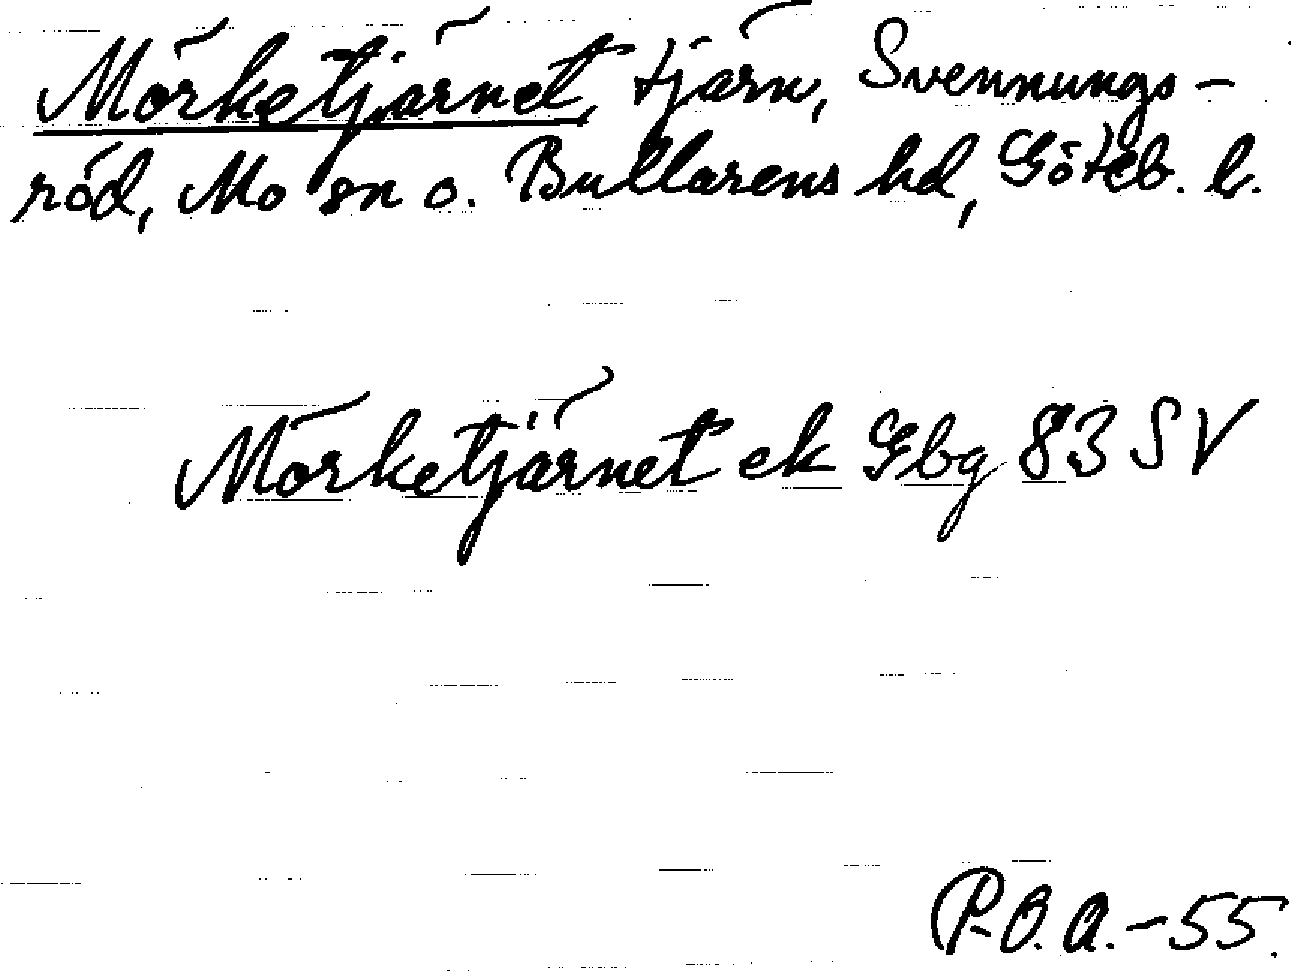 Mörketjärnet, tjärn, Svennungs-
röd, Mo sn o. Bullarens hd, Göteb. l.
Mörketjärnet ek Gbg 83 SV
P.O.A.-55.